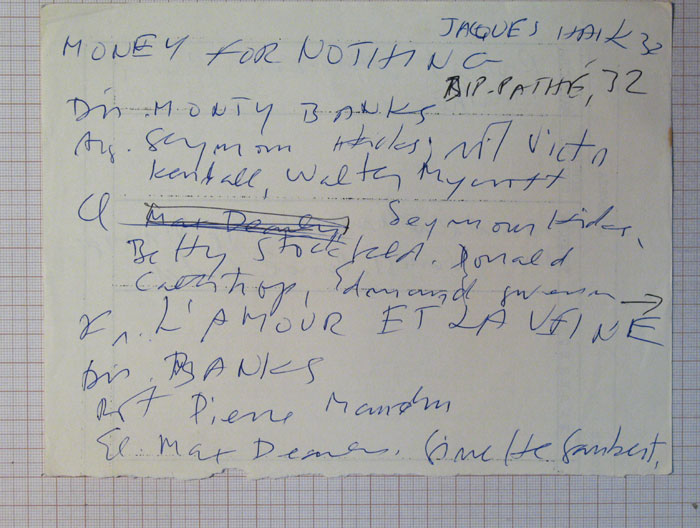 JACQUES HAIK 32
MONEY FOR NOTHING
BIP-PATHÉ, 32
Dir. MONTY BANKS
Arg. Seymour Hicks, Victor
Kendall, Walter Mycroft
Seymour Hicks,
Betty Stockfeld. Donald
Calthrop, Edmund Gwenn →
L'AMOUR ET LA VEINE
Dir. BANKS
Pierre Maudru
Max Dearly. Ginette Gaubert,